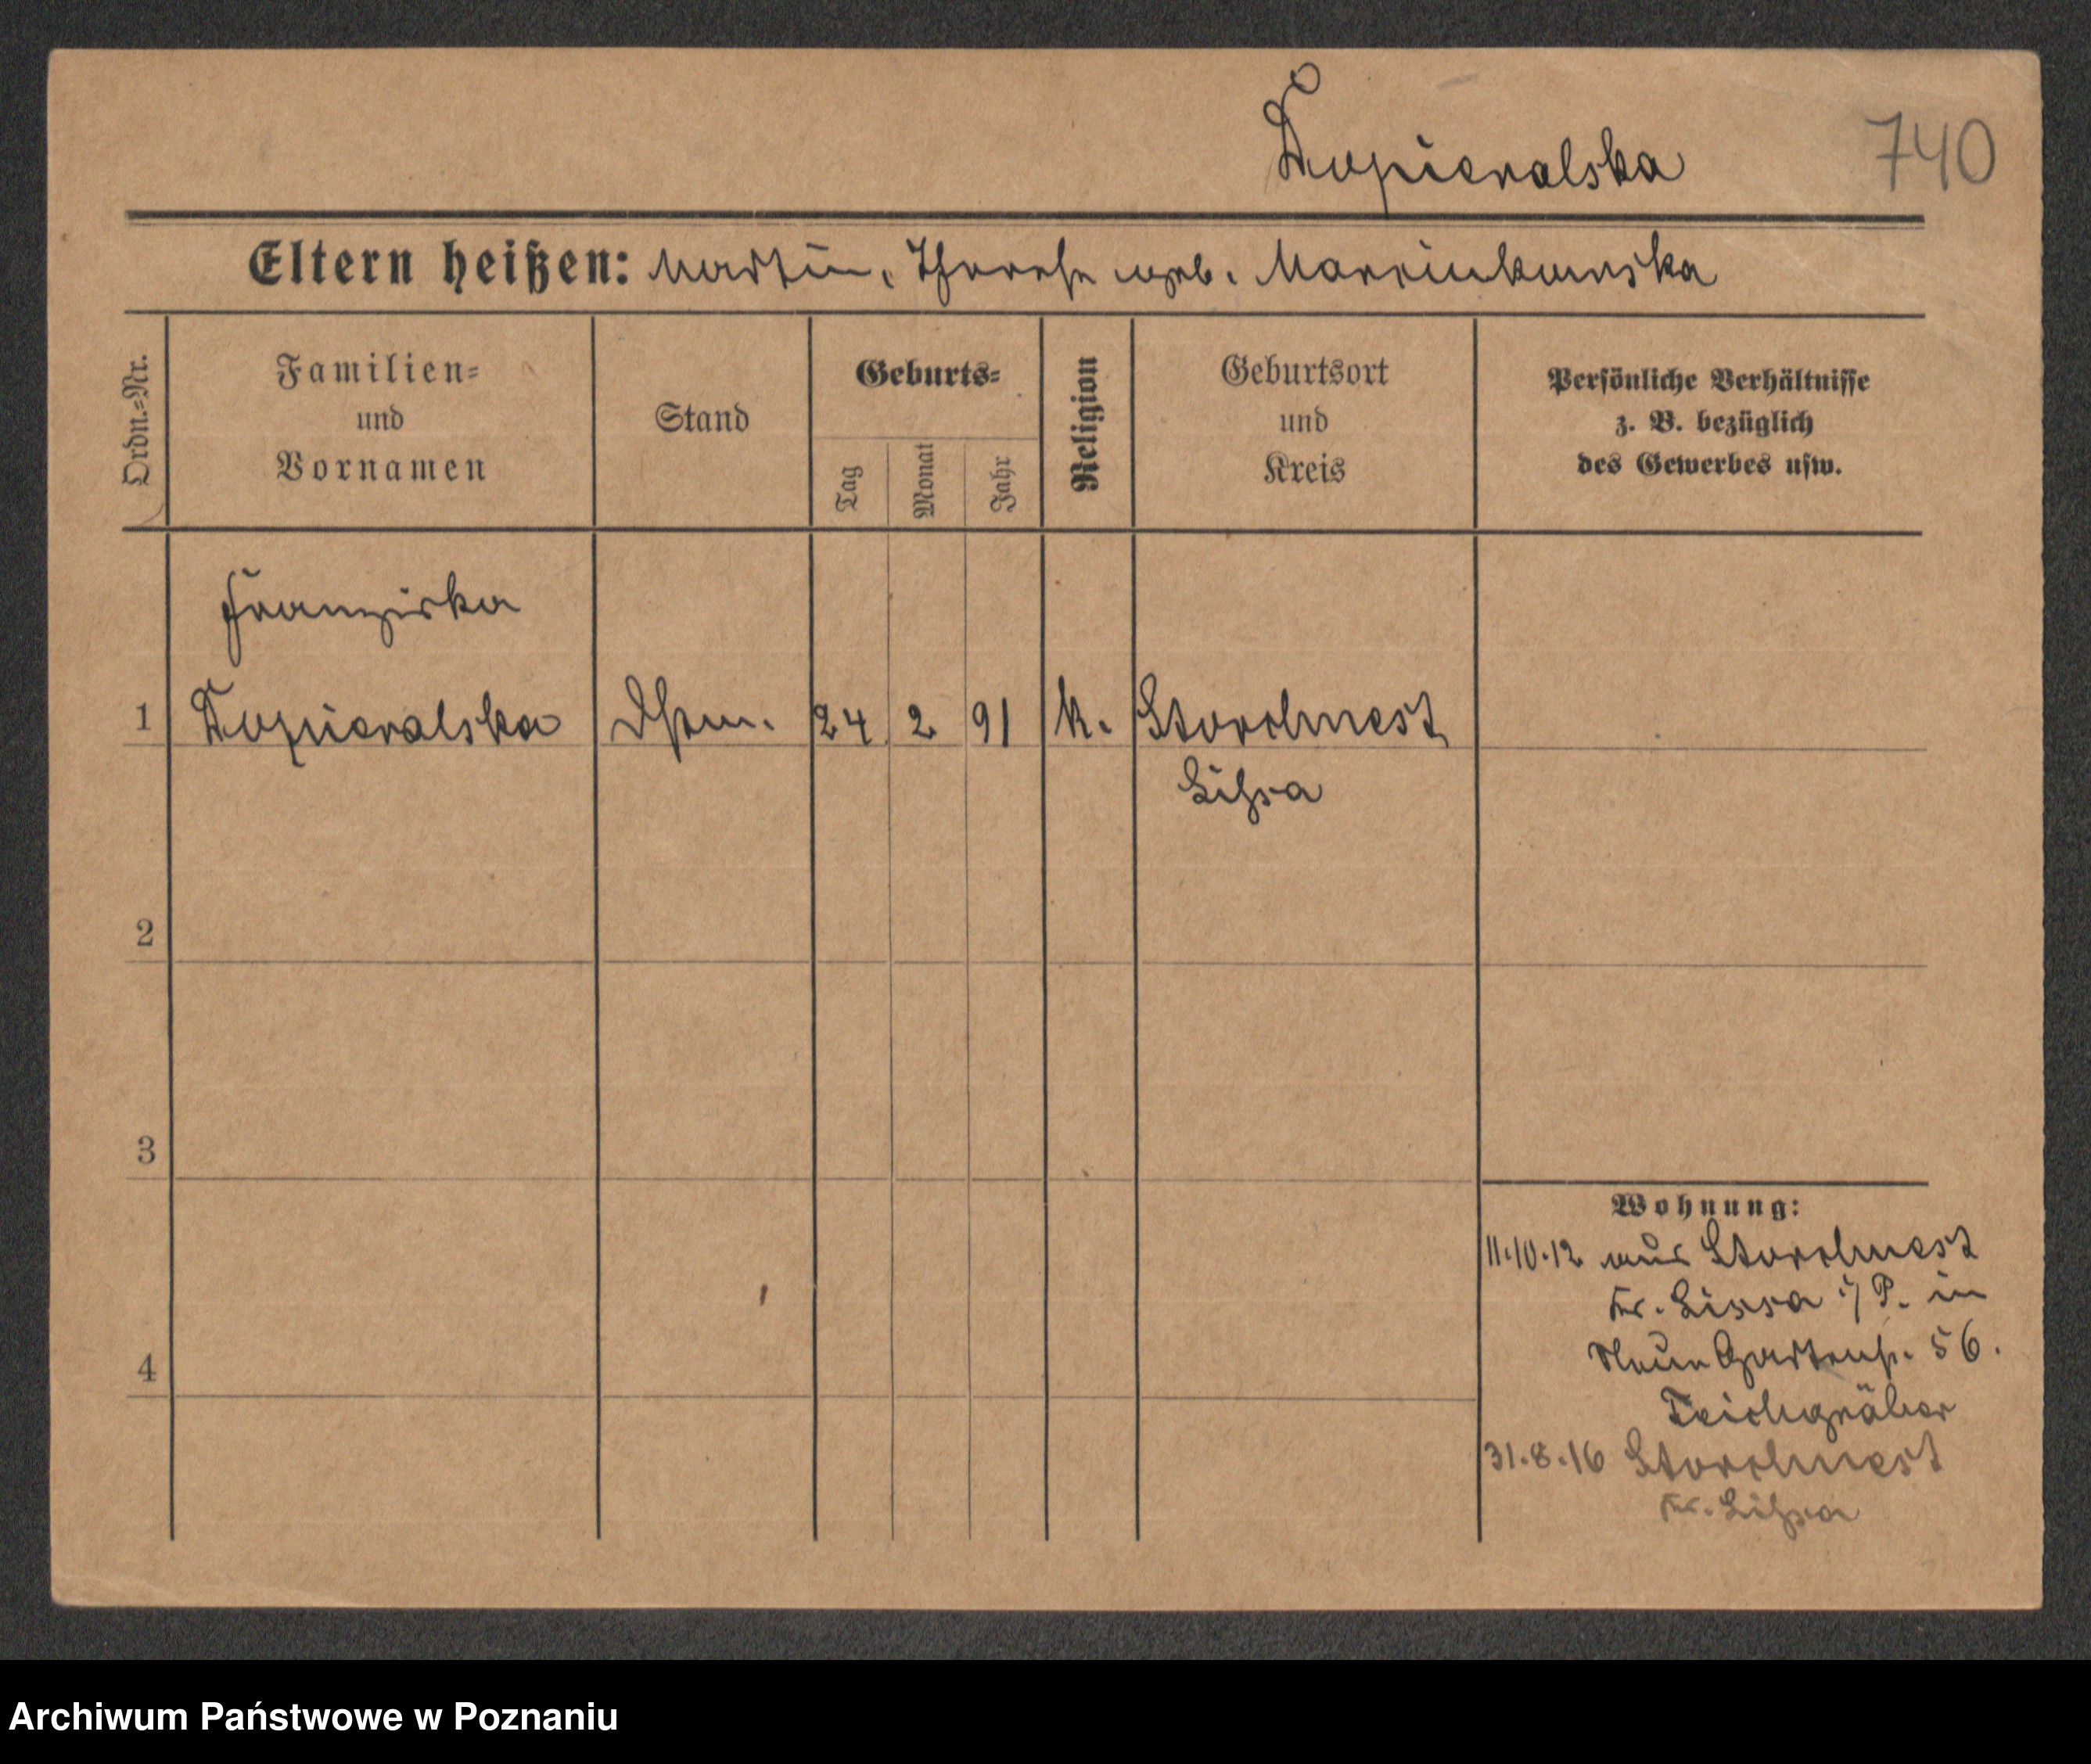 Dopieralska
740
Eltern heißen: Martin, Therese geb. Marcinkowska
Ordn.=Nr.
Familien=
und
Vornamen
Stand
Geburts=
Tag
Monat
Jahr
Religion
Geburtsort
und
Kreis
Persönliche Verhältnisse
z. B. bezüglich
des Gewerbes usw.
Franziska
1 Dopieralska Dhm. 24 2 91 k. Storchnest
Lissa
2
3
4
Wohnung:
11.10.12 aus Storchnest
Kr. Lissa i/P. in
Neue Gartenstr. 56.
Teichgräber
31.8.16 Storchnest
Kr. Lissa
Archiwum Państwowe w Poznaniu